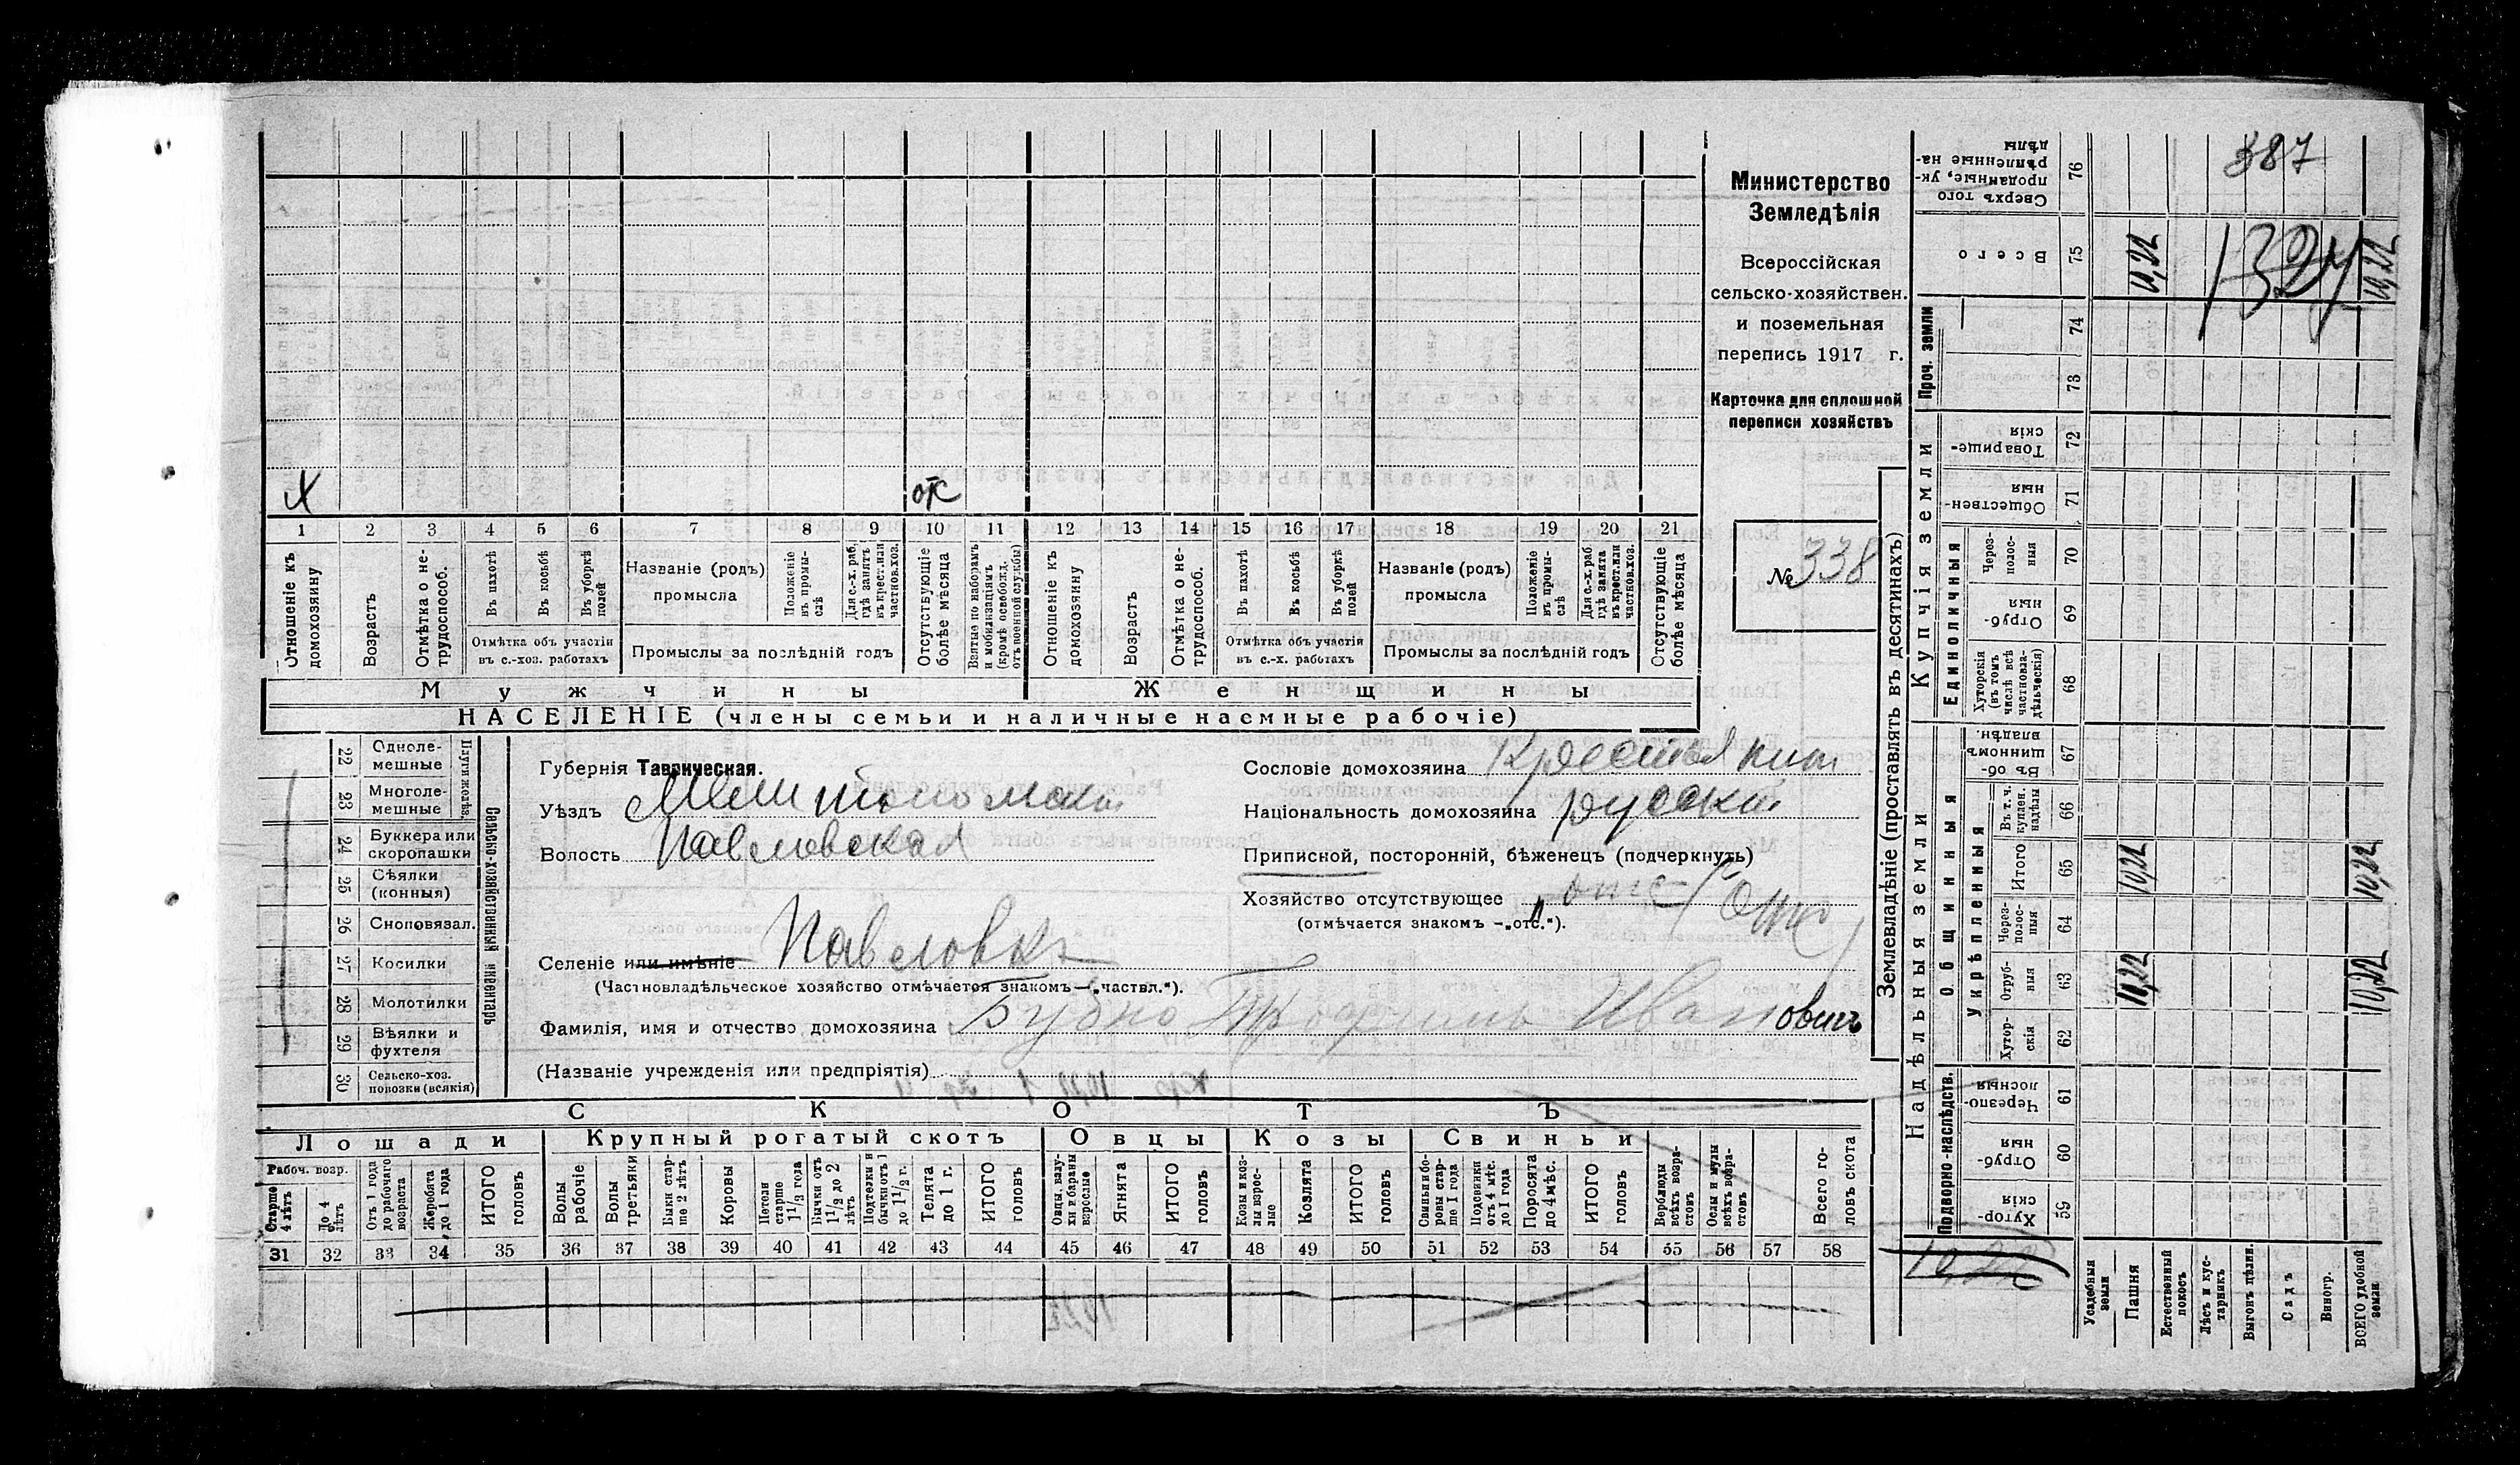 387
1324
Министерство
Земледѣлія
Всероссійская
сельско-хозяйствен.
и поземельная
перепись 1917 г.
Карточка для сплошной
переписи хозяйствъ
№ 338
Х
отс
1 2 3 4 5 6 7 8 9 10 11 12 13 14 15 16 17 18 19 20 21
Отношеніе къ домохозяину
Возрастъ
Отмѣтка о не-трудоспособ.
Въ пахотѣ
Въ косьбѣ
Въ уборкѣ полей
Отмѣтка объ участіи въ с.-хоз. работахъ
Названіе (родъ) промысла
Положеніе въ промы-слѣ
Для с.-х. раб. гдѣ занятъ въ крест. или частнов. хоз.
Промыслы за послѣдній годъ
Отсутствующіе болѣе мѣсяца
Взятые по наборамъ и мобилизаціямъ (кромѣ освобожд. отъ военной службы)
Отношеніе къ домохозяину
Возрастъ
Отмѣтка о не-трудоспособ.
Въ пахотѣ
Въ косьбѣ
Въ уборкѣ полей
Отмѣтка объ участіи въ с.-х. работахъ
Названіе (родъ) промысла
Положеніе въ промы-слѣ
Для с.-х. раб. гдѣ занята въ крест. или частнов. хоз.
Промыслы за послѣдній годъ
Отсутствующіе болѣе мѣсяца
Мужчины
Женщины
НАСЕЛЕНІЕ (члены семьи и наличные наемные рабочіе)
Сельско-хозяйственный инвентарь
22 Одноле-мешные
23 Многоле-мешные
24 Буккера или скоропашки
25 Сѣялки (конныя)
26 Сноповязал.
27 Косилки
28 Молотилки
29 Вѣялки и фухтеля
30 Сельско-хоз. повозки (всякія)
Губернія Таврическая.
Уѣздъ Мелитопольскій
Волость Павловская
Селеніе или имѣніе Павловка
(Частновладѣльческое хозяйство отмѣчается знакомъ—„частвл.“).
Фамилія, имя и отчество домохозяина Бубно Трофимъ Ивановичъ
(Названіе учрежденія или предпріятія)
Сословіе домохозяина Крестьянин
Національность домохозяина русскій
Приписной, посторонній, бѣженецъ (подчеркнуть)
Хозяйство отсутствующее отс
(отмѣчается знакомъ —„отс.“).
СКОТЪ
Лошади
Крупный рогатый скотъ
Овцы
Козы
Свиньи
Рабоч. возр.
Старше 4 лѣтъ
До 4 лѣтъ
Отъ 1 года до рабочаго возраста
Жеребята до 1 года
ИТОГО головъ
Волы рабочіе
Волы третьяки
Быки стар-ше 2 лѣтъ
Коровы
Нетели старше 1 1/2 года
Бычки отъ 1 1/2 до 2 лѣтъ
Подтелки и бычки отъ 1 до 1 1/2 г.
Телята до 1 г.
ИТОГО головъ
Овцы, валу-хи и бараны взрослые
Ягнята
ИТОГО головъ
Козы и коз-лы взрос-лые
Козлята
ИТОГО головъ
Свиньи и бо-ровы стар-ше 1 года
Подсвинки отъ 4 мѣс. до 1 года
Поросята до 4 мѣс.
ИТОГО головъ
Верблюды всѣхъ возра-стовъ
Ослы и мулы всѣхъ возра-стовъ
Всего го-ловъ скота
31 32 33 34 35 36 37 38 39 40 41 42 43 44 45 46 47 48 49 50 51 52 53 54 55 56 57 58
Землевладѣніе (проставлять въ десятинахъ)
Надѣльныя земли
Купчія земли
Проч. земли
Подворно-наслѣдств.
Общинныя
Укрѣпленныя
Единоличныя
76 Сверхъ того проданные, ук-рѣпленные на-дѣлы
75 Всего 10,22 10,22
74
73
72 Товарище-скія
71 Обществен-ныя
70 Через-полос-ныя
69 Отруб-ныя
68 Хуторскія (въ томъ числѣ всѣ частновла-дѣльческія)
67 Въ об-щинномъ владѣн.
66 Въ т. ч. куплен. надѣлы
65 Итого 10,22 10,22
64 Через-полос-ныя
63 Отруб-ныя 10,22 10,22
62 Хутор-скія
61 Черезпо-лосныя
60 Отруб-ныя
59 Хутор-скія
10,22
Усадебныя земли
Пашня
Естественный покосъ
Лѣсъ и кус-тарникъ
Выгонъ цѣлин.
Садъ
Виногр.
ВСЕГО удобной земли